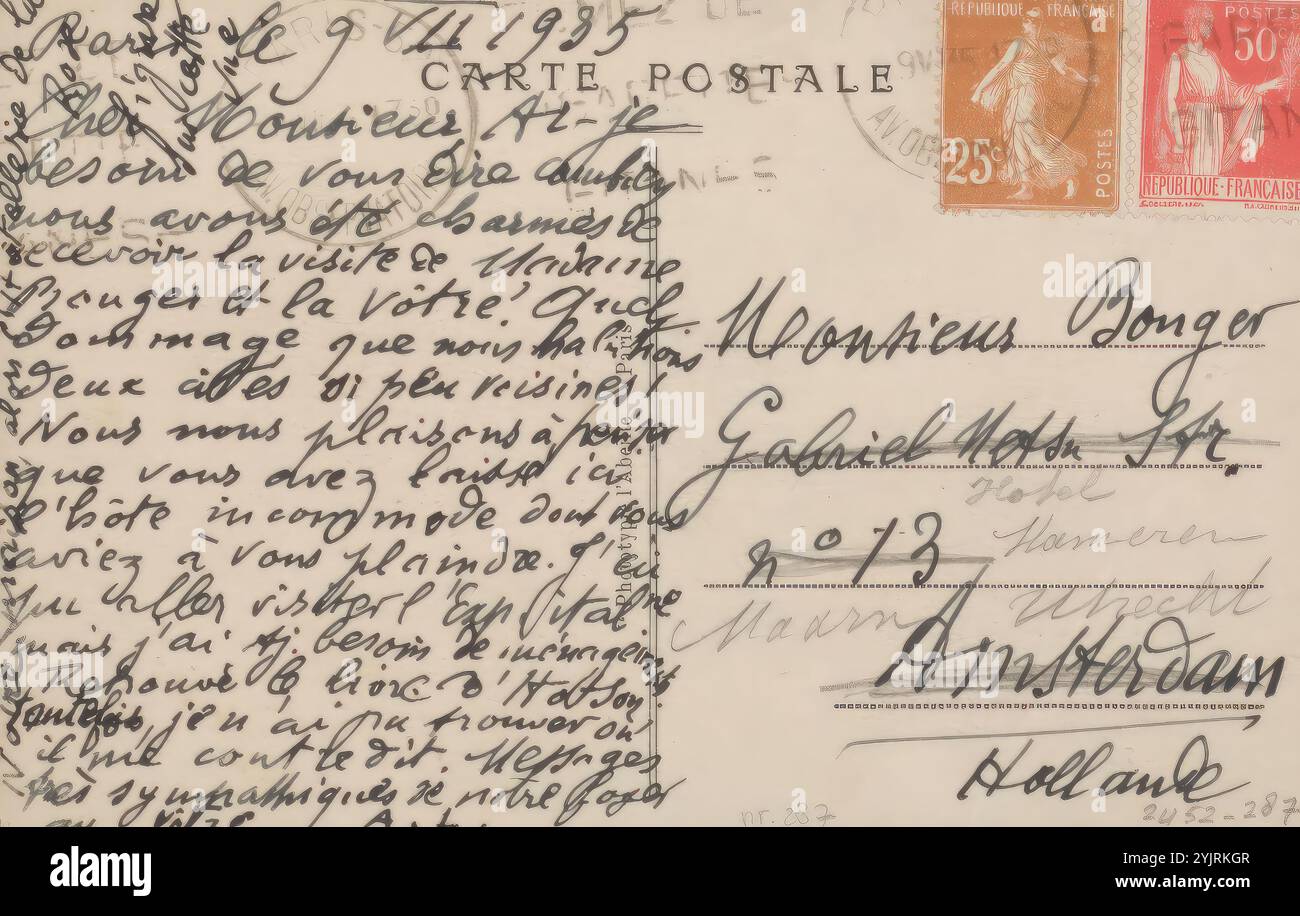 Paris le 9 VII 1935
CARTE POSTALE
Cher Monsieur Ai-je
besoin de vous dire combien
nous avons été charmés de
recevoir la visite de Madame
et la vôtre! Quel
dommage que nous habitions
deux cités si peu voisines!
Nous nous plaisons à penser
que vous avez laissé ici
l'hôte incommode dont vous
aviez à vous plaindre. J'ai
pu aller visiter l'Exp ital
mais j'ai besoin de
Retrouvé le livre d'
je n'ai pu trouver où
il me contredit. Messages
très sympathiques de notre foyer
au vôtre
sur cette
vue
Phototypie l'Abeille, Paris
RÉPUBLIQUE FRANÇAISE
25c
POSTES
POSTES
50c
RÉPUBLIQUE-FRANÇAISE
Monsieur Bonger
Gabriel Metsu Str.
Hotel
n° 13
Maarn Utrecht
Amsterdam
Hollande
nr. 287
2452-287
alamy
Image ID: 2YJRKGR
www.alamy.com